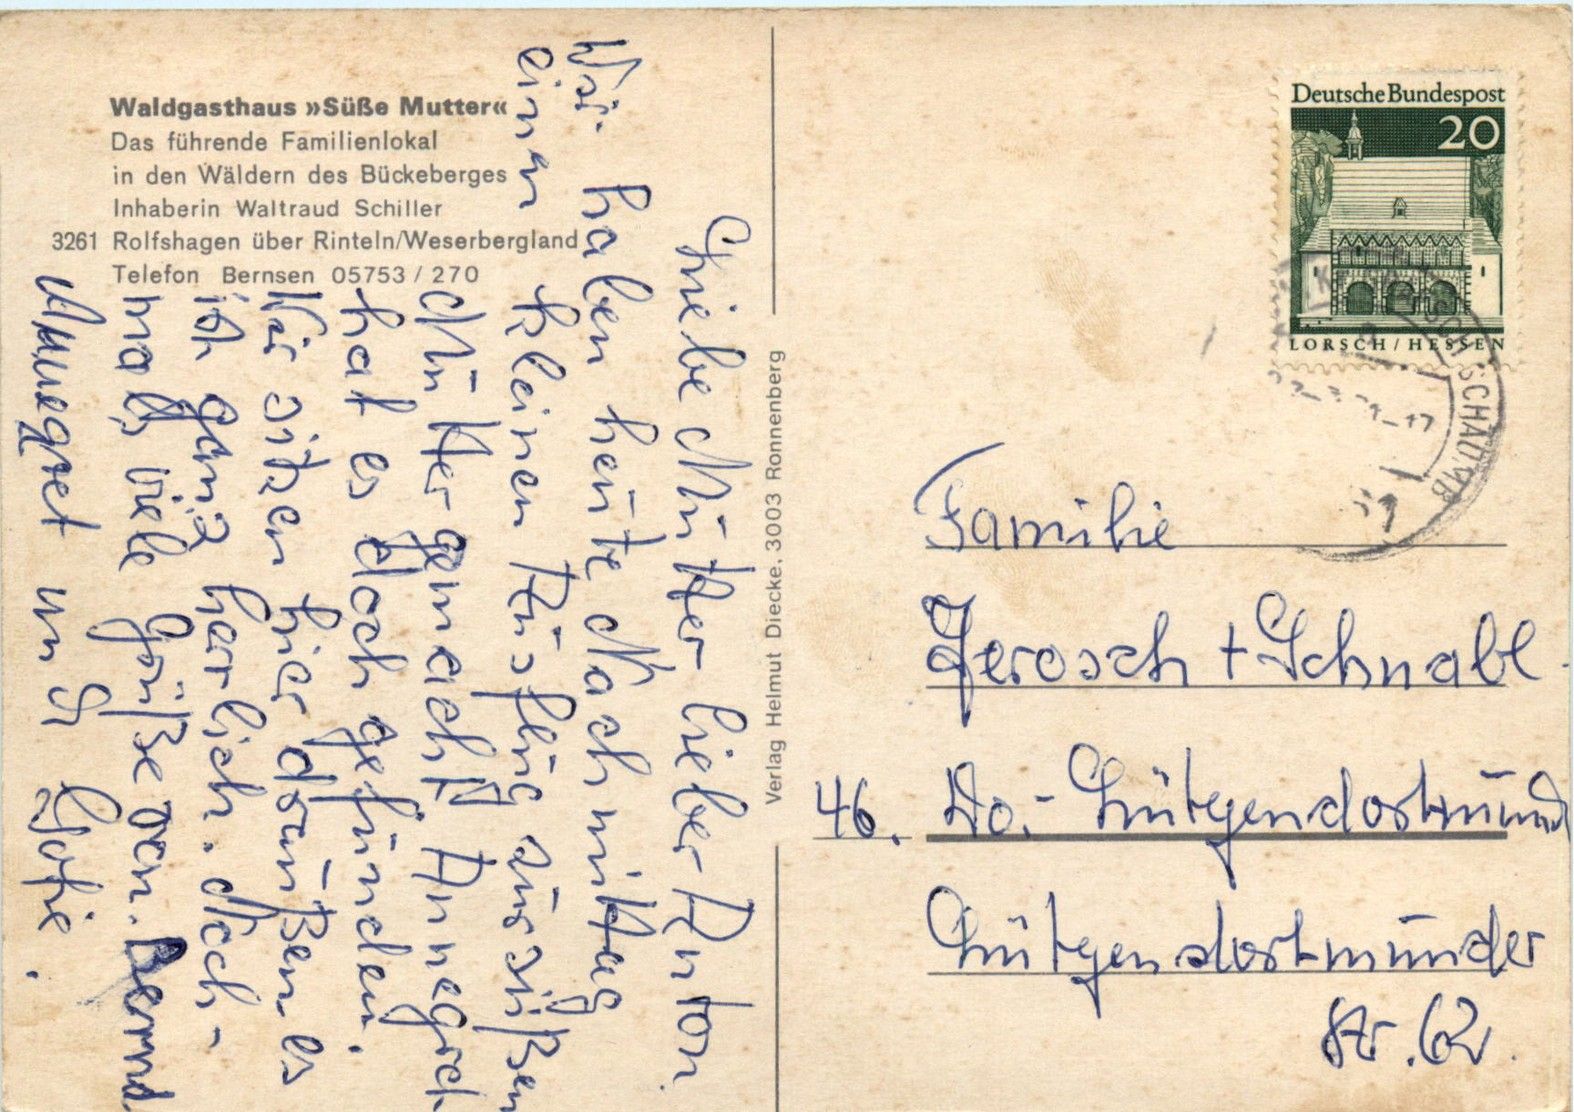 Waldgasthaus »Süße Mutter«
Das führende Familienlokal
in den Wäldern des Bückeberges
Inhaberin Waltraud Schiller
3261 Rolfshagen über Rinteln/Weserbergland
Telefon Bernsen 05753/270
Liebe Mutter lieber Anton
Wir haben heute Nachmittag
einen kleinen Ausflug zur süßen
Mutter gemacht. Annegret
hat es doch gefunden.
Wir sitzen hier draußen es
ist ganz herlich. Noch-
mals viele Grüße von. Bernd
Annegret un
Verlag Helmut Diecke, 3003 Ronnenberg
Deutsche Bundespost
20
LORSCH/HESSEN
SCHAUMB
Familie
Jerosch + Schnabl.
46. Do.- Lütgendortmund
Lütgendortmunder
Str. 62.